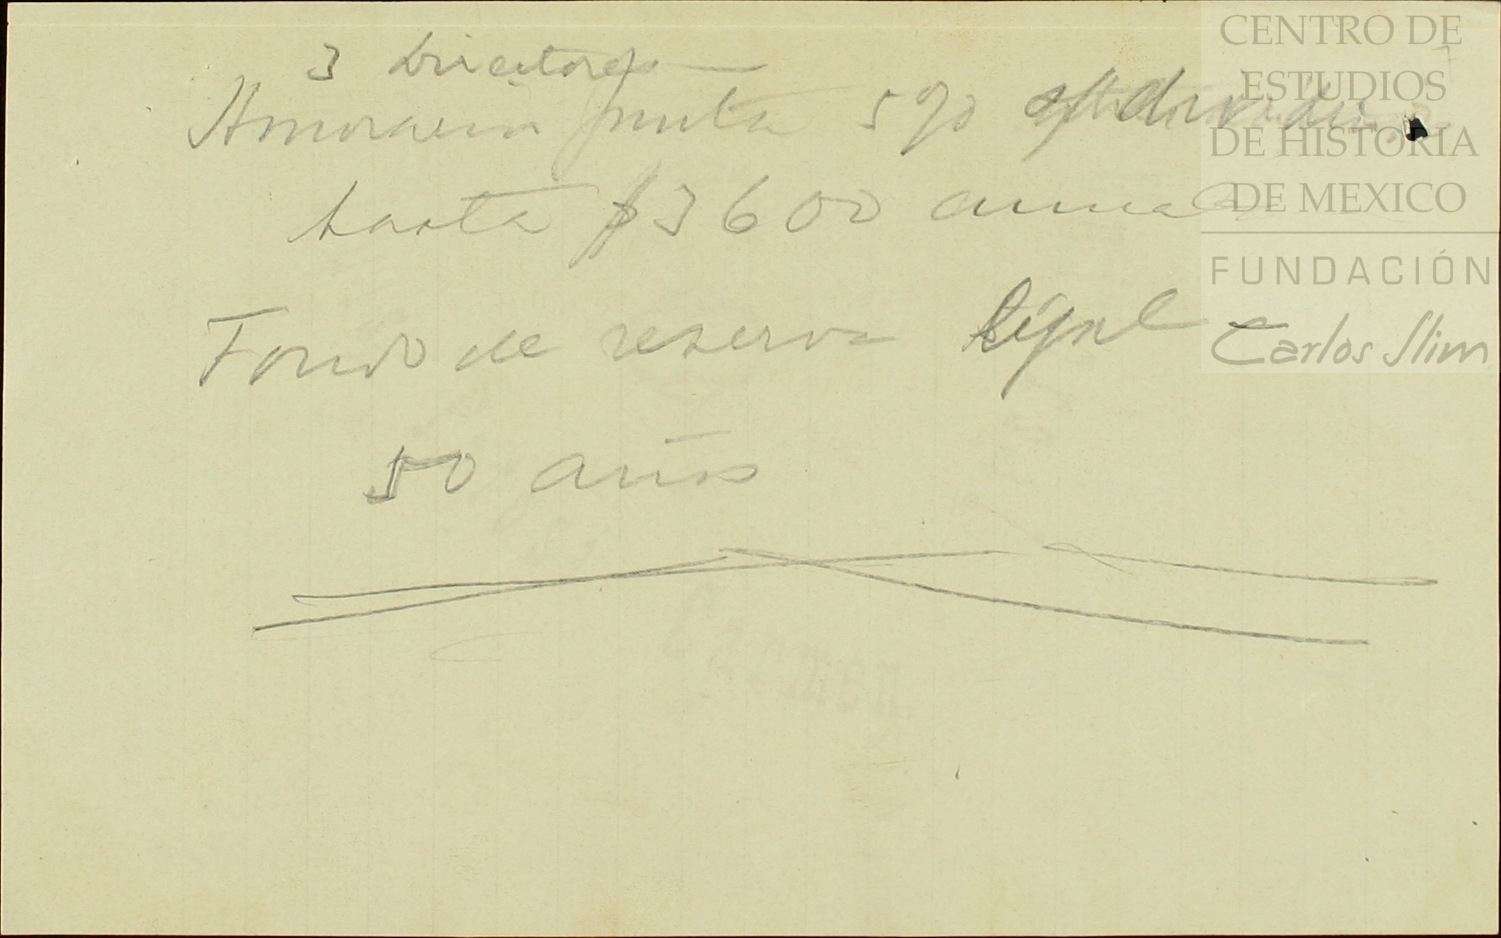 3 Directores
Honorarios junta 5% s/ dividendos
hasta $3600 anuales
Fondo de reserva legal
50 años
CENTRO DE
ESTUDIOS
DE HISTORIA
DE MEXICO
FUNDACIÓN
Carlos Slim